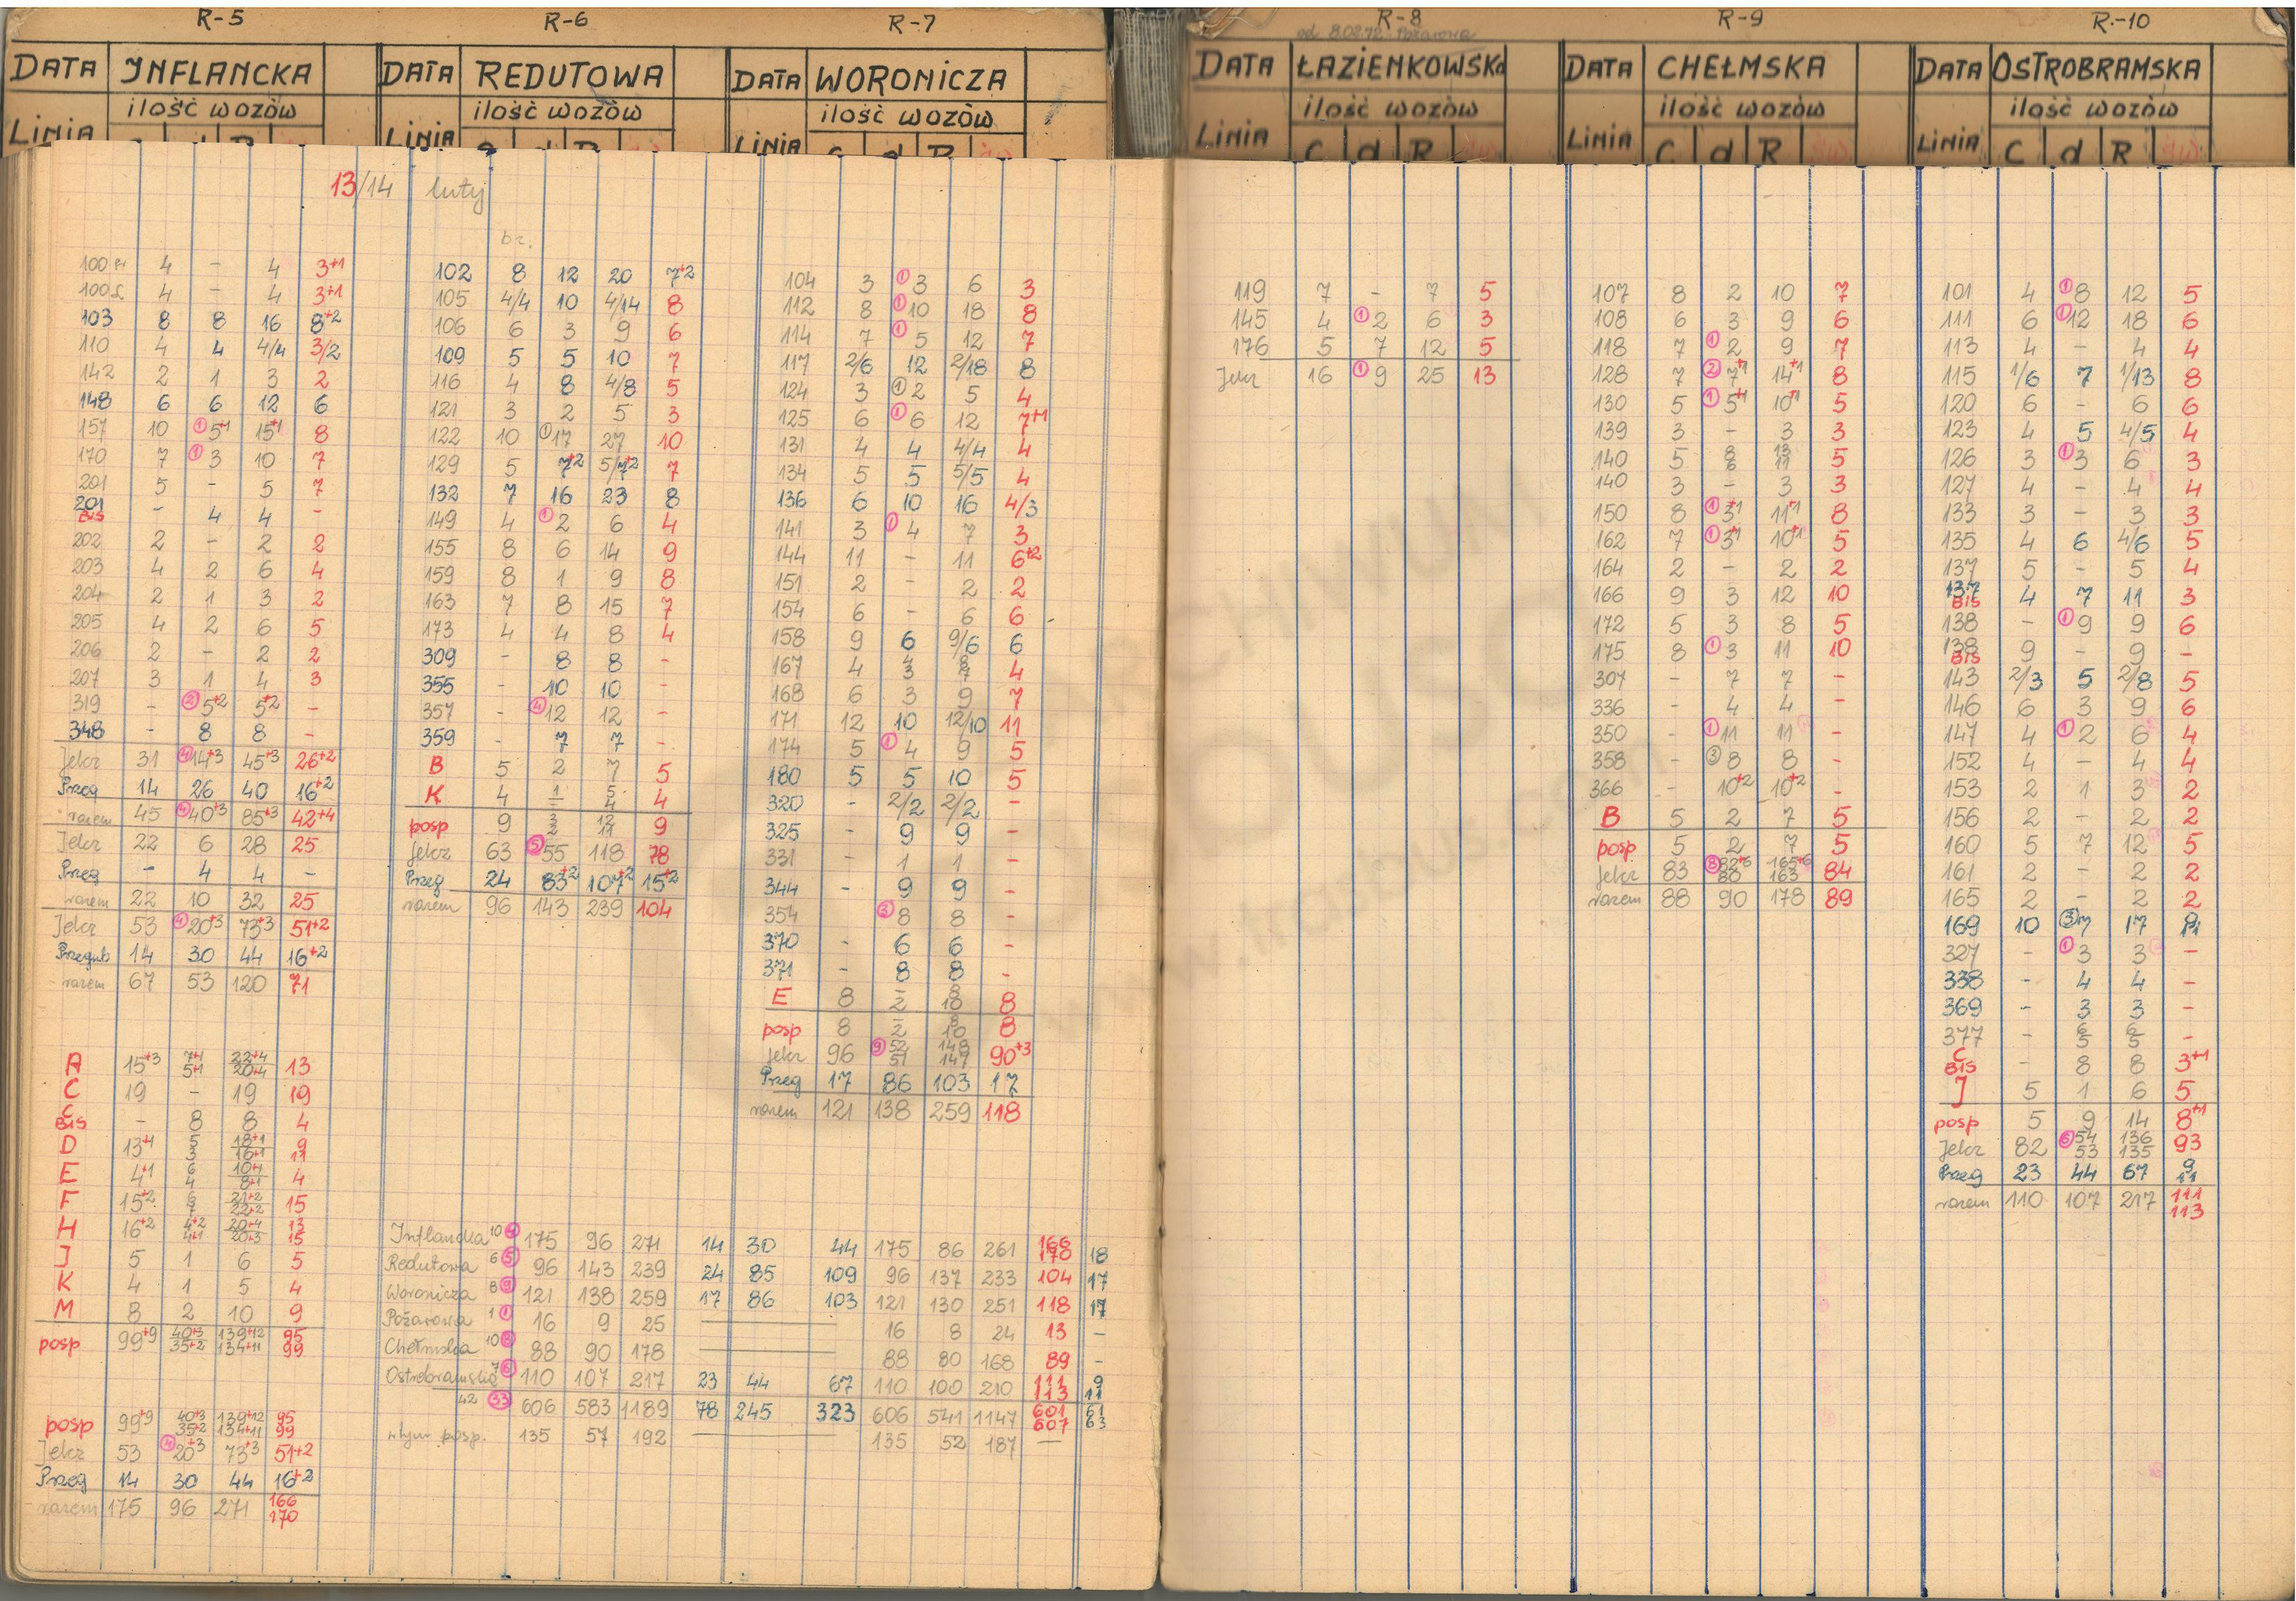 R-5
DATA INFLANCKA
ilość wozów
LINIA
R-6
DATA REDUTOWA
ilość wozów
LINIA
R-7
DATA WORONICZA
ilość wozów
LINIA
R-8
od 8.02.72 Pożarowa
DATA ŁAZIENKOWSKA
ilość wozów
LINIA C d R św
R-9
DATA CHEŁMSKA
ilość wozów
LINIA C d R św
R-10
DATA OSTROBRAMSKA
ilość wozów
LINIA C d R św
13/14 luty
100 4 - 4 3+1
100 4 - 4 3+1
103 8 8 16 8+2
110 4 4 4/4 3/2
142 2 1 3 2
148 6 6 12 6
157 10 ① 5+1 15+1 8
170 7 ① 3 10 7
201 5 - 5 7
201 BIS - 4 4 -
202 2 - 2 2
203 4 2 6 4
204 2 1 3 2
205 4 2 6 5
206 2 - 2 2
207 3 1 4 3
319 - ② 5+2 5+2 -
348 - 8 8 -
Jelcz 31 ④ 14+3 45+3 26+2
Przeg 14 26 40 16+2
razem 45 ④ 40+3 85+3 42+4
Jelcz 22 6 28 25
Przeg - 4 4 -
razem 22 10 32 25
Jelcz 53 ④ 20+3 73+3 51+2
Przegub 14 30 44 16+2
razem 67 53 120 71
A 15+3 7+1 5+1 22+4 20+4 13
C 19 - 19 19
C BIS - 8 8 4
D 13+1 5 3 18+1 16+1 9 11
E 4+1 6 4 10+1 8+1 4
F 15+2 6 21+2 22+2 15
H 16+2 4+2 4+1 20+4 20+3 13 15
J 5 1 6 5
K 4 1 5 4
M 8 2 10 9
posp 99+9 40+3 35+2 139+12 134+11 95 99
posp 99+9 40+3 35+2 139+12 134+11 95 99
Jelcz 53 ④ 20+3 73+3 51+2
Przeg 14 30 44 16+2
razem 175 96 271 166 170
br.
102 8 12 20 7+2
105 4/4 10 4/14 8
106 6 3 9 6
109 5 5 10 7
116 4 8 4/8 5
121 3 2 5 3
122 10 ① 17 27 10
129 5 7+2 5/7+2 7
132 7 16 23 8
149 4 ① 2 6 4
155 8 6 14 9
159 8 1 9 8
163 7 8 15 7
173 4 4 8 4
309 - 8 8 -
355 - 10 10 -
357 - ④ 12 12 -
359 - 7 7 -
B 5 2 7 5
K 4 1 - 5 4 4
posp 9 3 2 12 11 9
Jelcz 63 ⑤ 55 118 78
Przeg 24 83+2 107+2 15+2
razem 96 143 239 104
104 3 ① 3 6 3
112 8 ① 10 18 8
114 7 ① 5 12 7
117 2/6 12 2/18 8
124 3 ① 2 5 4
125 6 ① 6 12 7+1
131 4 4 4/4 4
134 5 5 5/5 4
136 6 10 16 4/3
141 3 ① 4 7 3
144 11 - 11 6+2
151 2 - 2 2
154 6 - 6 6
158 9 6 9/6 6
167 4 4 3 8 7 4
168 6 3 9 7
171 12 10 12/10 11
174 5 ① 4 9 5
180 5 5 10 5
320 - 2/2 2/2 -
325 - 9 9 -
331 - 1 1 -
344 - 9 9 -
354 8 8 -
370 - 6 6 -
371 - 8 8 -
E 8 - 2 8 10 8
posp 8 - 2 8 10 8
Jelcz 96 ⑨ 52 51 148 147 90+3
Przeg 17 86 103 17
razem 121 138 259 118
Inflancka 10 ④ 175 96 271 14 30 44 175 86 261 166 170 18
Redutowa 6 ⑤ 96 143 239 24 85 109 96 137 233 104 17
Woronicza 8 ⑨ 121 138 259 17 86 103 121 130 251 118 17
Pożarowa 1 ① 16 9 25 — 16 8 24 13 -
Chełmska 10 ⑧ 88 90 178 — 88 80 168 89 -
Ostrobramska 7 ⑥ 110 107 217 23 44 67 110 100 210 111 113 9 11
42 ㉝ 606 583 1189 78 245 323 606 541 1147 601 607 61 63
w tym posp. 135 57 192 — 135 52 187 —
119 7 - 7 5
145 4 ① 2 6 3
176 5 7 12 5
Jelcz 16 ① 9 25 13
107 8 2 10 7
108 6 3 9 6
118 7 ① 2 9 7
128 7 ② 7+1 14+1 8
130 5 ① 5+1 10+1 5
139 3 - 3 3
140 5 8 6 13 11 5
140 3 - 3 3
150 8 ① 3+1 11+1 8
162 7 ① 3+1 10+1 5
164 2 - 2 2
166 9 3 12 10
172 5 3 8 5
175 8 ① 3 11 10
307 - 7 7 -
336 - 4 4 -
350 - ① 11 11 -
358 - ③ 8 8 -
366 - 10+2 10+2 -
B 5 2 7 5
posp. 5 2 7 5
Jelcz 83 ⑧ 82+6 80 165+6 163 84
razem 88 90 178 89
101 4 ① 8 12 5
111 6 ① 12 18 6
113 4 - 4 4
115 1/6 7 1/13 8
120 6 - 6 6
123 4 5 4/5 4
126 3 ① 3 6 3
127 4 - 4 4
133 3 - 3 3
135 4 6 4/6 5
137 5 - 5 4
137 BIS 4 7 11 3
138 - ① 9 9 6
138 BIS 9 - 9 -
143 2/3 5 2/8 5
146 6 3 9 6
147 4 ① 2 6 4
152 4 - 4 4
153 2 1 3 2
156 2 - 2 2
160 5 7 12 5
161 2 - 2 2
165 2 - 2 2
169 10 ③ 7 17
327 - ① 3 3 -
338 - 4 4 -
369 - 3 3 -
377 - 6 5 6 5 -
C BIS - 8 8 3+1
J 5 1 6 5
posp 5 9 14 8+1
Jelcz 82 ⑥ 54 53 136 135 93
Przeg 23 44 67 9 11
razem 110 107 217 111 113